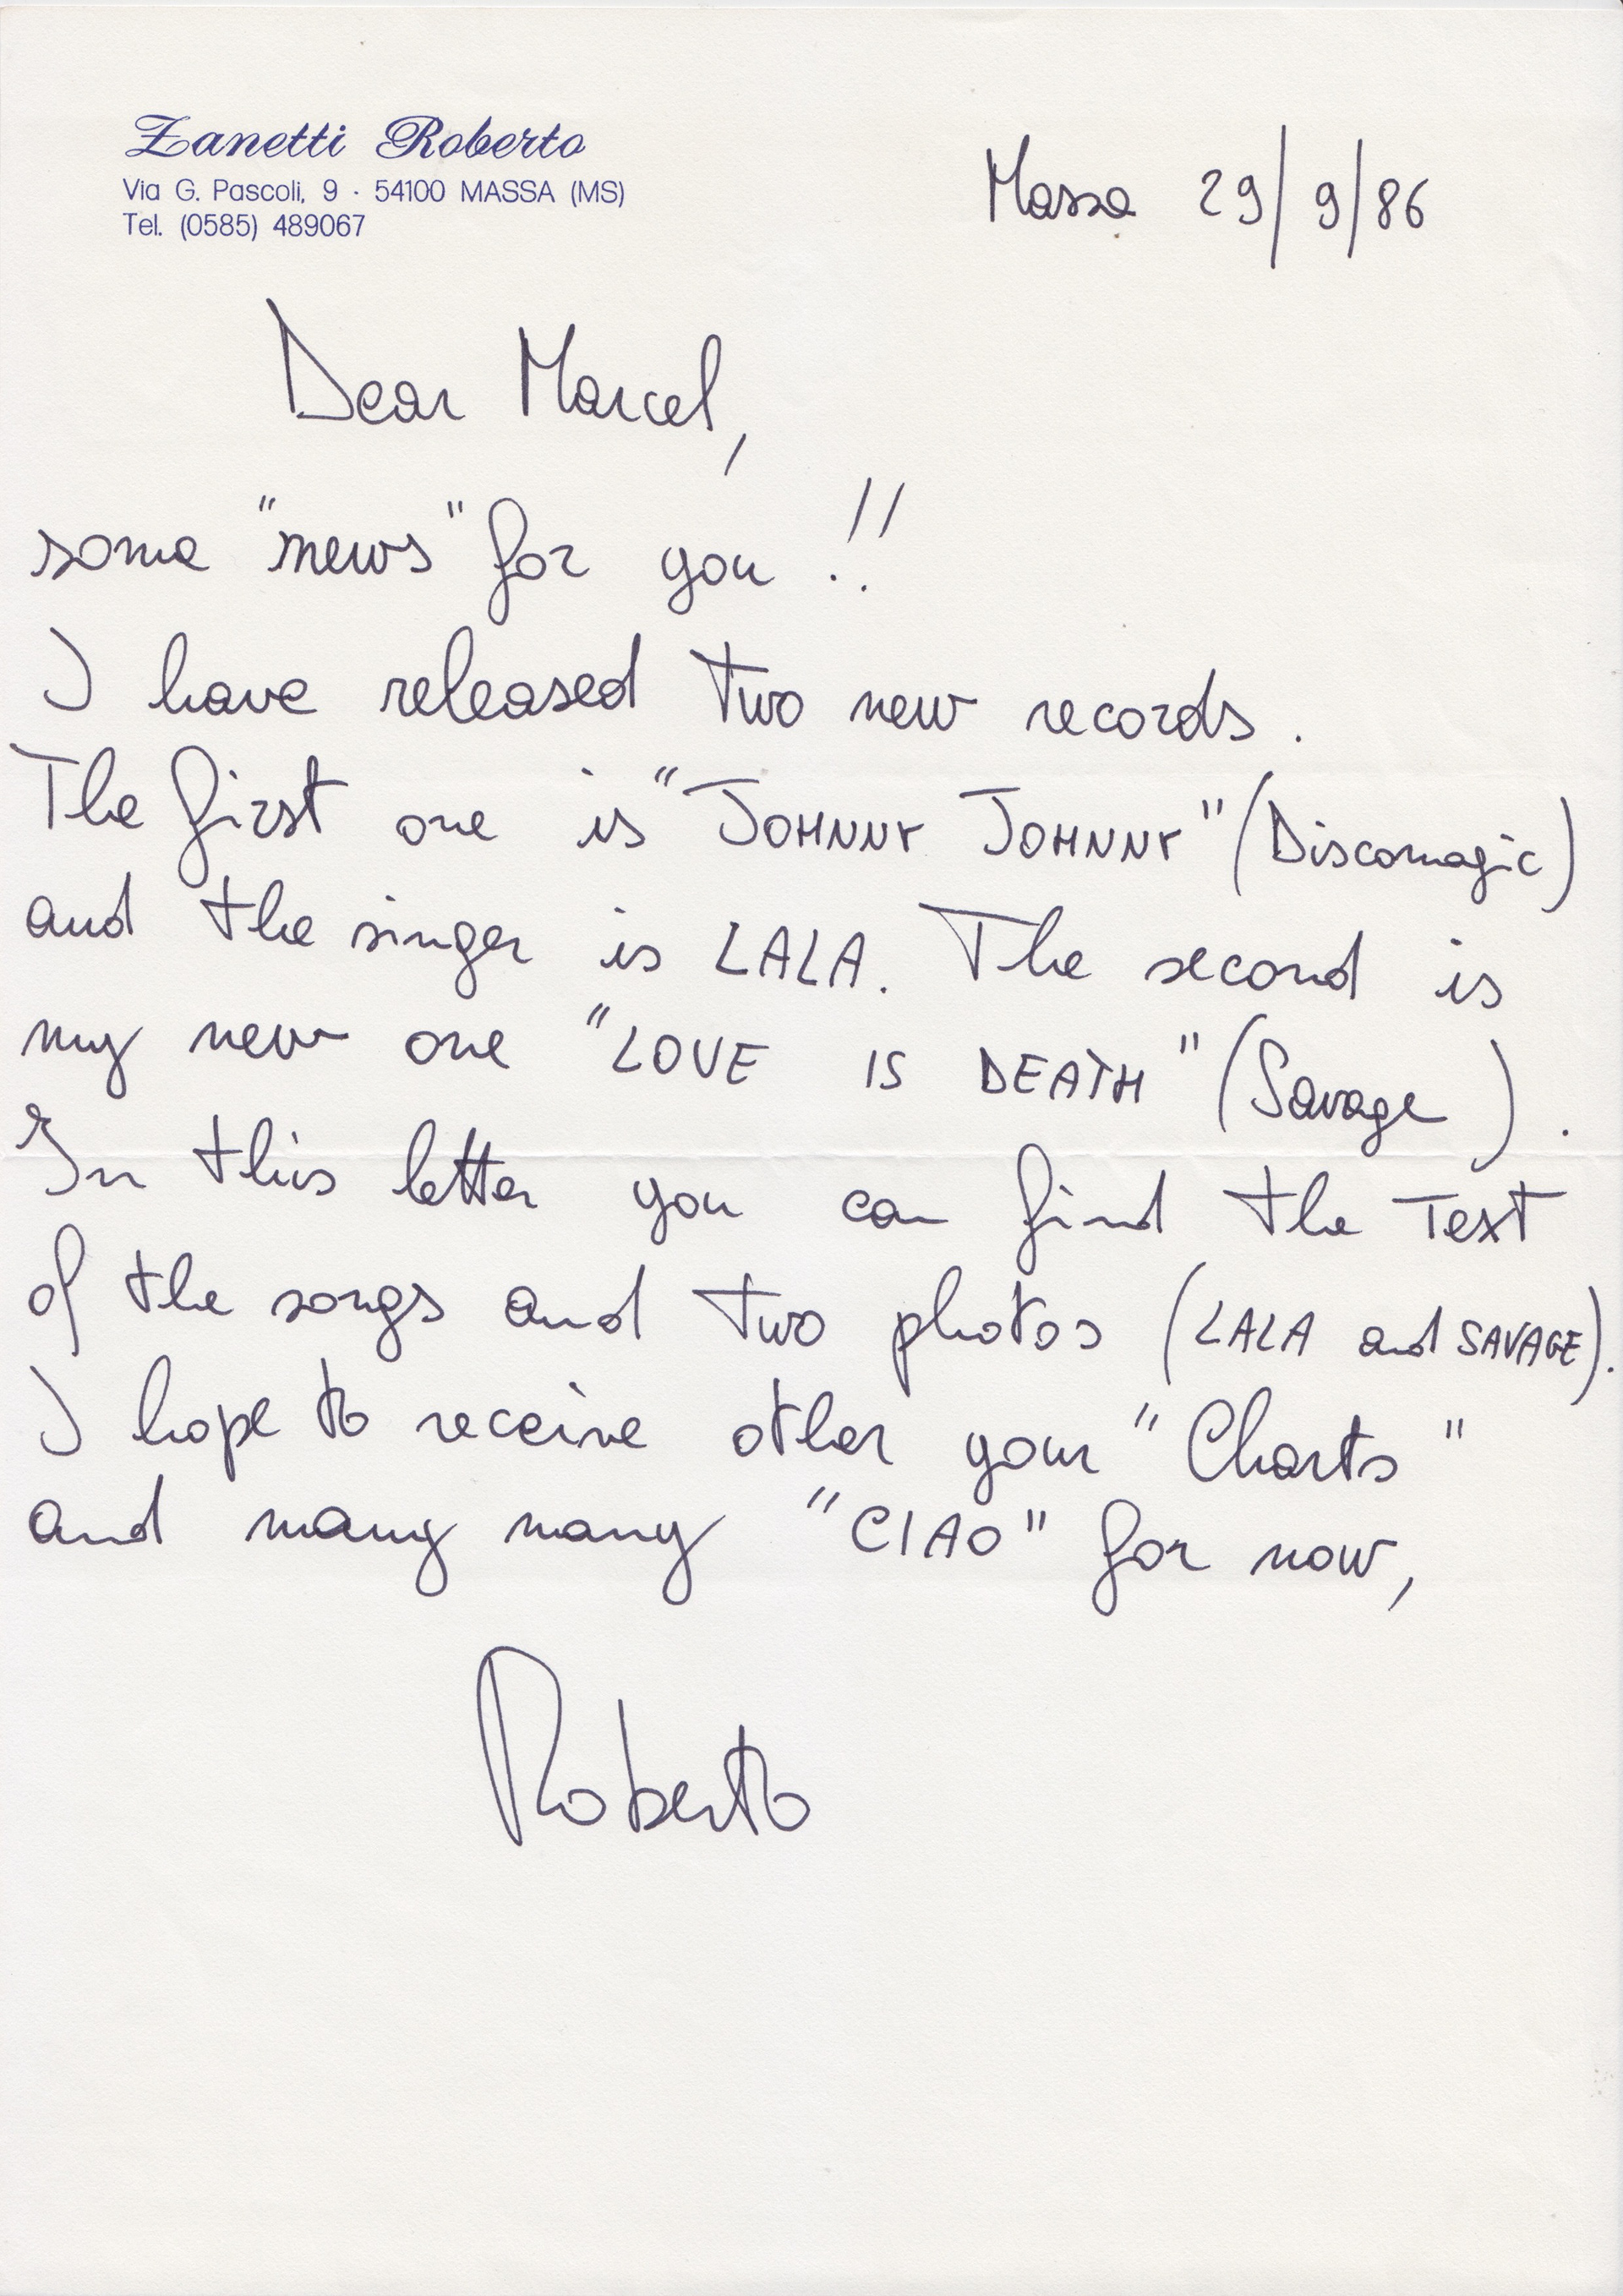 Zanetti Roberto
Via G. Pascoli, 9 - 54100 MASSA (MS)
Tel. (0585) 489067
Massa 29/9/86
Dear Marcel,
some "news" for you !!
I have released two new records.
The first one is "JOHNNY JOHNNY" (Discomagic)
and the singer is LALA. The second is
my new one "LOVE IS DEATH" (Savage).
In this letter you can find the text
of the songs and two photos (LALA and SAVAGE).
I hope to receive other your "Charts"
and many many "CIAO" for now,
Roberto